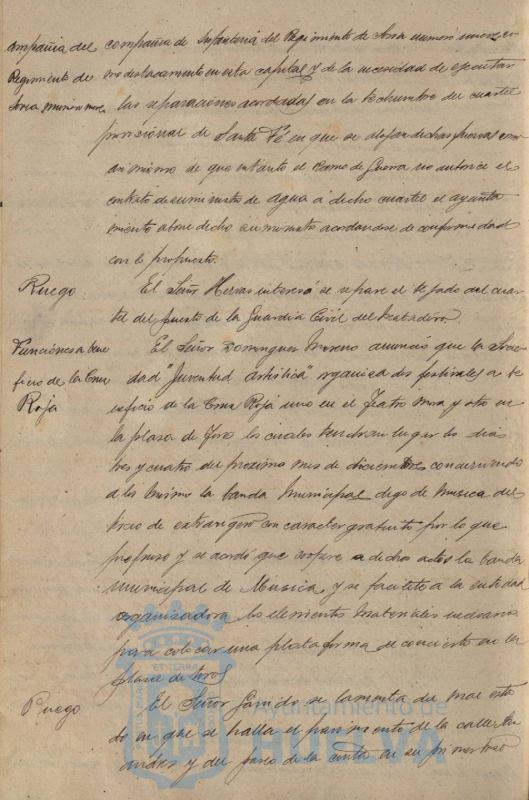 compañia del
Regimiento de
Soria numero nueve
compañia de Infanteria del Regimiento de Soria numero nueve
destacamento en esta capital y de la necesidad de ejecutar
las reparaciones acordadas en la techumbre del cuartel
provisional de Santa Fé en que se alojan dichas fuerzas
asimismo de que in tanto el Ramo de Guerra no autorice el
contrato de suministro de agua a dicho cuartel el ayunta
miento abone dicho suministro acordandose de conformidad
con lo propuesto.
Ruego
El Señor Hervas interesó se repare el tejado del cuar
tel del puesto de la Guardia Civil del Matadero
Funciones a bene
ficio de la Cruz
Roja
El Señor Dominguez Moreno anunció que la Socie
dad "Juventud artistica" organiza dos festivales a be
neficio de la Cruz Roja uno en el Teatro Mora y otro en
la plaza de Toros los cuales tendran lugar los dias
tres y cuatro del proximo mes de diciembre
a los mismos la banda Municipal digo de musica del
tercio de extranjero con caracter gratuito por lo que
propuso y se acordó que coopere a dichos actos la banda
Municipal de Musica y se facilite a la entidad
organizadora los elementos materiales necesarios
para colocar una plataforma de concierto en la
plaza de toros
Ruego
El Señor Garrido se lamenta del mal esta
do en que se halla el pavimento de la calle San
Andres y del paseo de la cinta en su primer
Ayuntamiento de
HUELVA